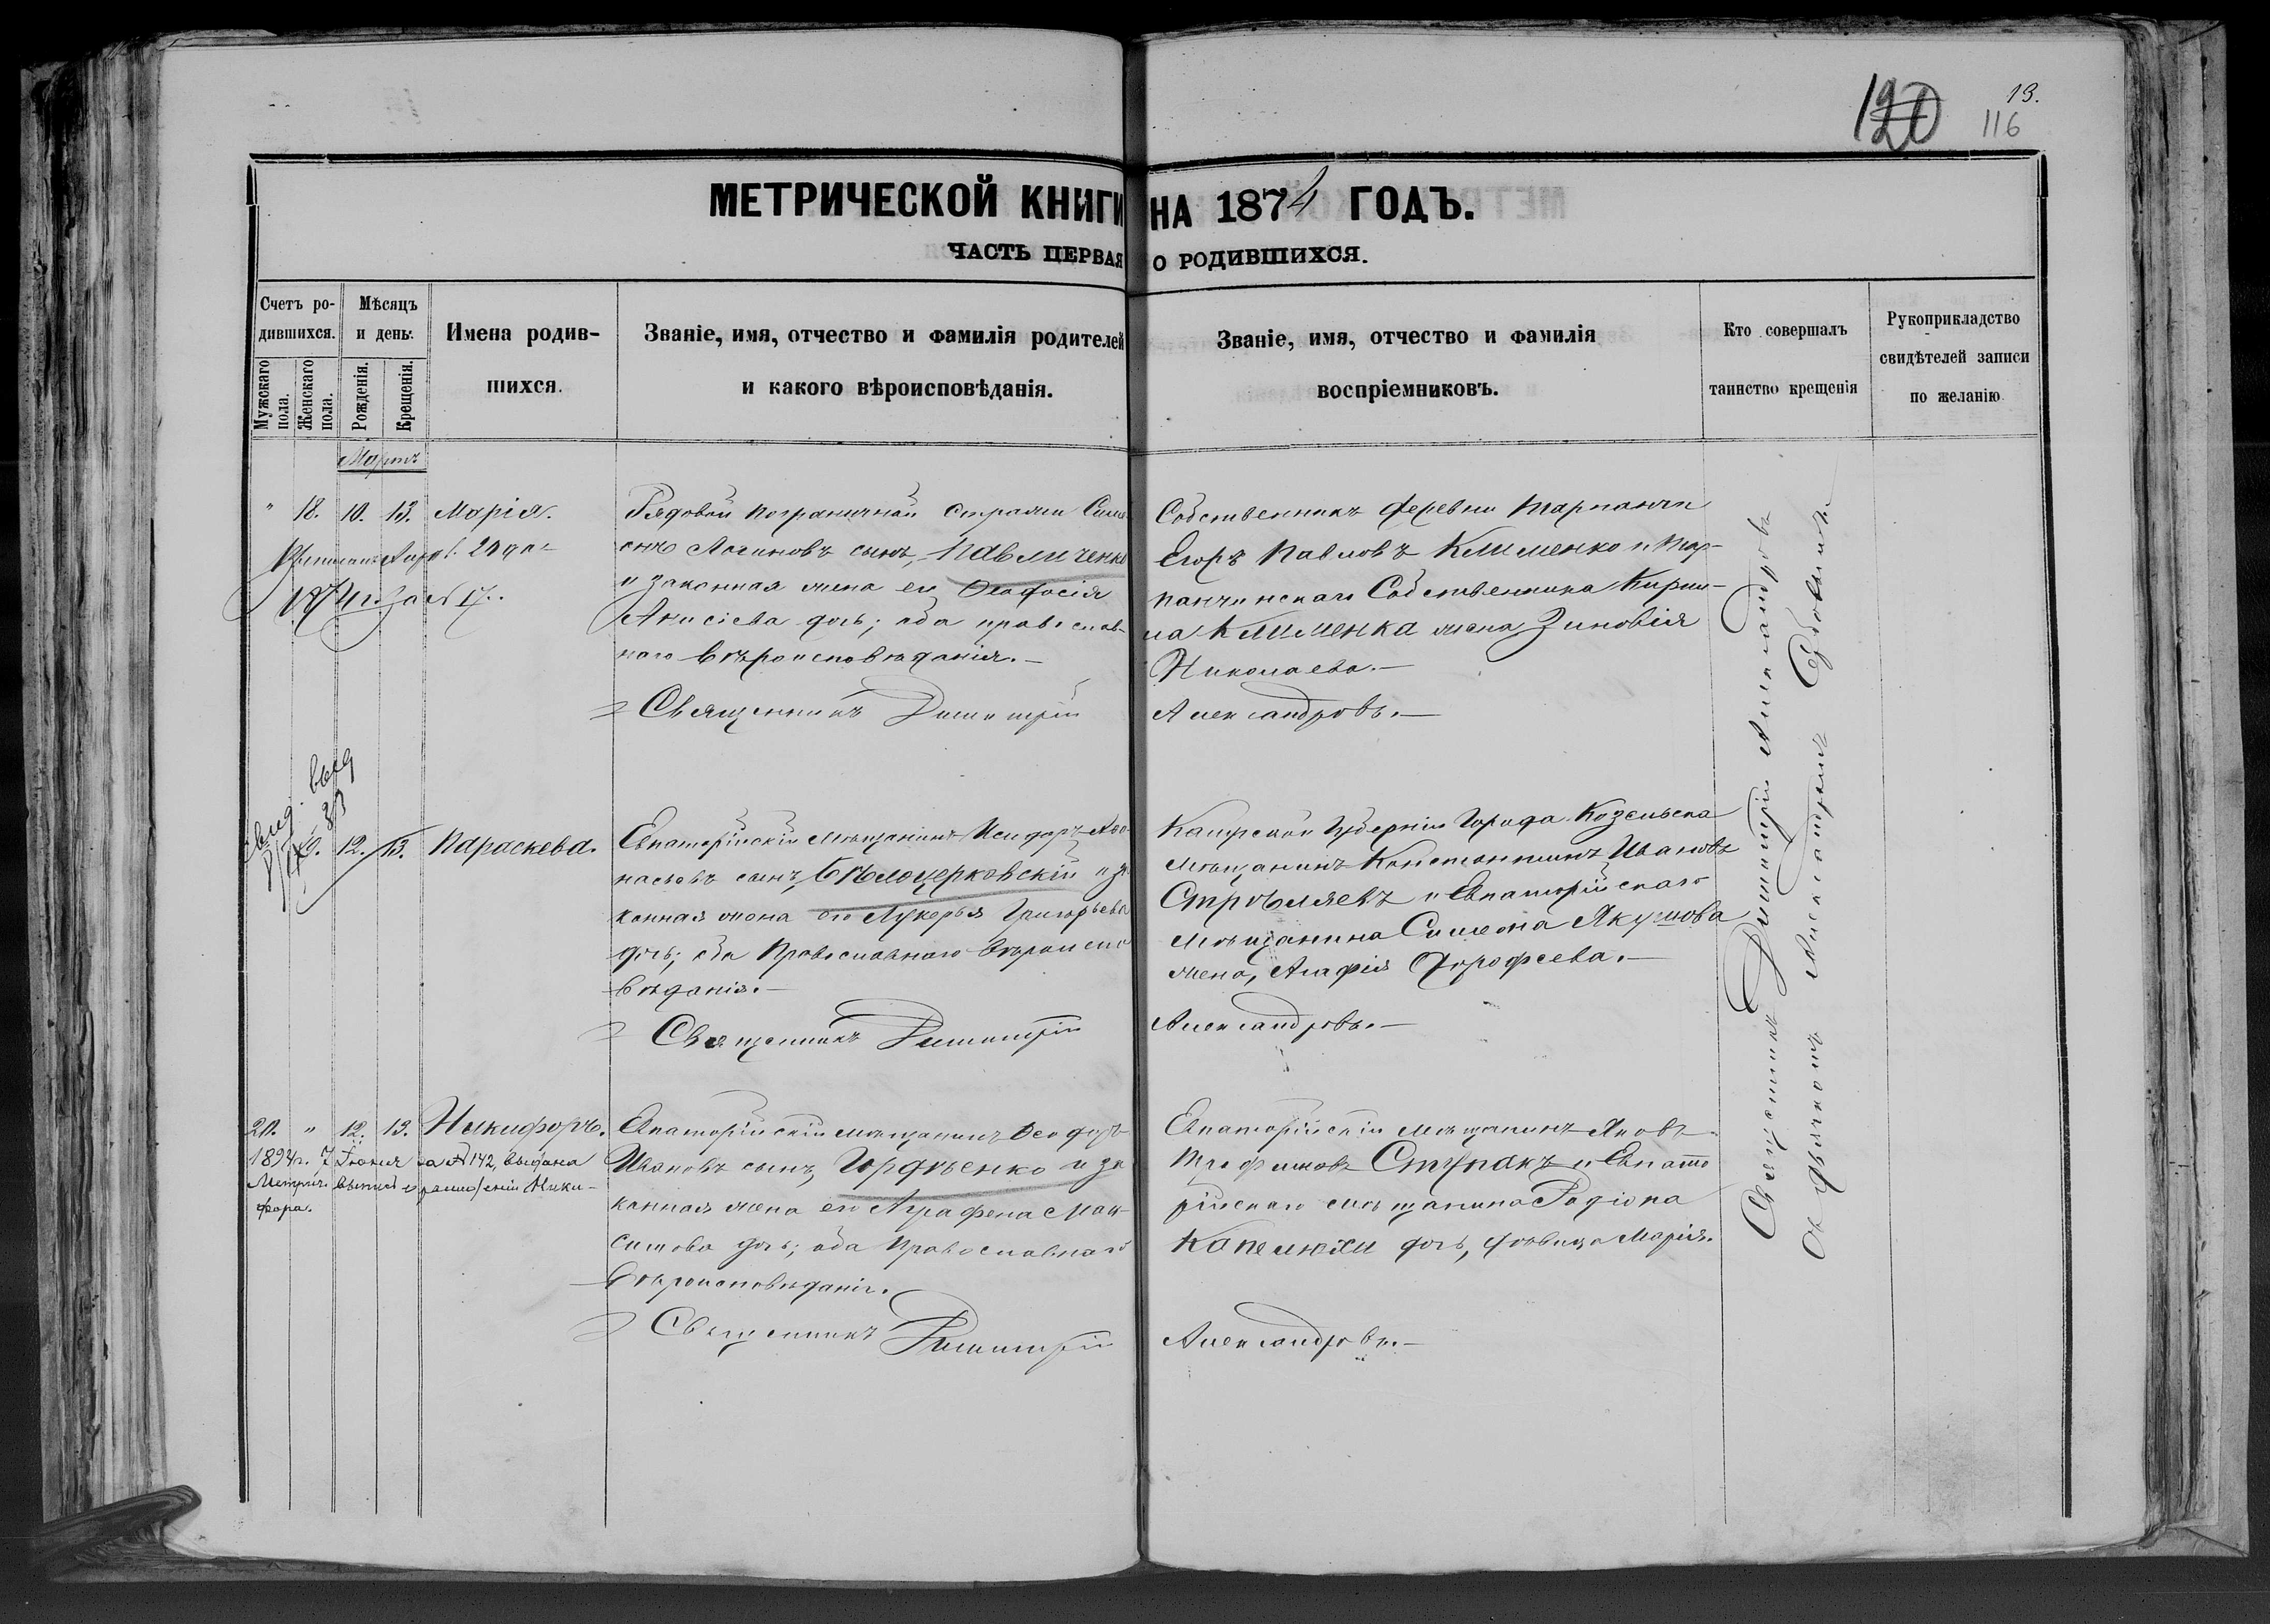 13.
120 116
МЕТРИЧЕСКОЙ КНИГИ НА 1874 ГОДЪ.
ЧАСТЬ ПЕРВАЯ О РОДИВШИХСЯ.
Счетъ ро-
дившихся.
Мужскаго пола.
Женскаго пола.
Мѣсяцъ
и день:
Рожденія.
Крещенія.
Имена родив-
шихся.
Званіе, имя, отчество и фамилія родителей
и какого вѣроисповѣданія.
Званіе, имя, отчество и фамилія
воспріемниковъ.
Кто совершалъ
таинство крещенія
Рукоприкладство
свидѣтелей записи
по желанію
Мартъ
" 18. 10. 13. Марія.
20 дня
за № 17.
Рядовой пограничной стражи Симе-
онъ Логиновъ сынъ, Павличенко
и законная жена его Феодосія
Анисіева дочь; оба православ-
наго вѣроисповѣданія.—
Священникъ Димитрій Александровъ.—
Собственникъ деревни Тарпанчи
Егоръ Павловъ Клименко и Тар-
панчинскаго Собственника Кирил-
ла Клименка жена Зиновія
Николаева.—
12. 13. Параскева.
Евпаторійскій мѣщанинъ Исидоръ Афа-
насьевъ сынъ, Бѣлоцерковскій и за-
конная жена его Лукерья Григорьева
дочь; оба Православнаго вѣроиспо-
вѣданія.—
Священникъ Димитрій Александровъ.—
Калужской Губерніи Города Козельска
мѣщанинъ Константинъ Ивановъ
Стрѣляевъ и Евпаторійскаго
мѣщанина Симеона Якушова
жена, Агафія Дорофеева.—
20. " 12. 13. Никифоръ.
1894г. 7 Іюня за № 142, выдана
Метрич. выпись о рожденіи Ники-
фора.
Евпаторійскій мѣщанинъ Феодоръ
Ивановъ сынъ, Гордѣенко и за-
конная жена его Аграфена Мак-
симова дочь; оба Православнаго
вѣроисповѣданія.
Священникъ Димитрій Александровъ.—
Евпаторійскій мѣщанинъ Яковъ
Трофимовъ Ступакъ и Евпато
рійскаго мѣщанина Родіона
дочь, дѣвица Марія.
Священникъ Димитрій Александровъ